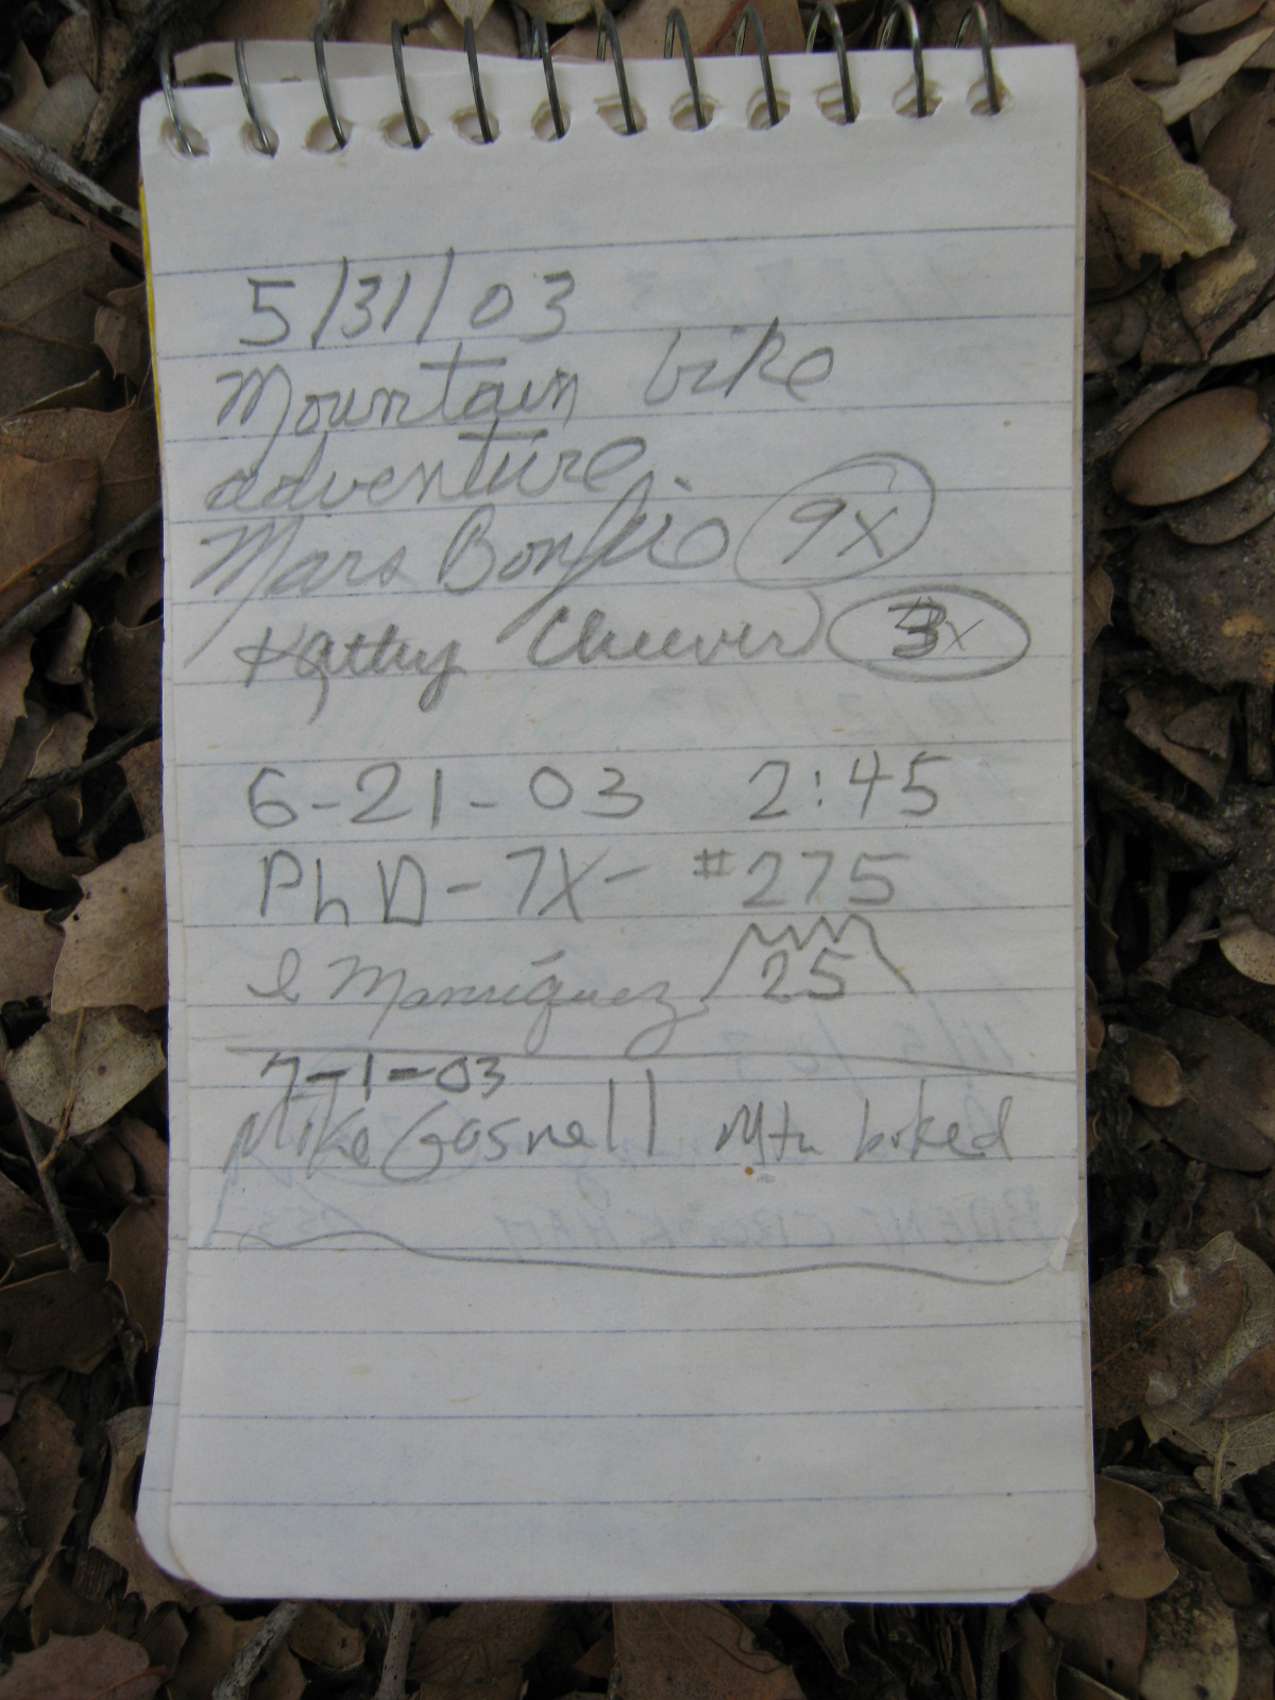 5/31/03
Mountain bike
adventure
Mars Bonfire 9x
Kathy Cheever 3x
6-21-03 2:45
PhD-7X- #275
Manríquez 25
7-1-03
Mike Gosnell Mtn biked